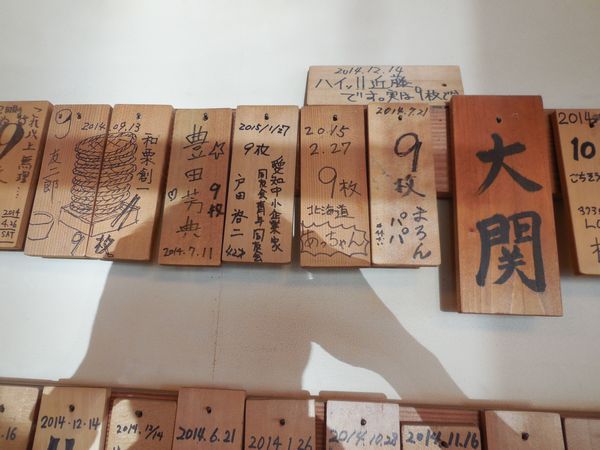 2014.12.14
ハイッ!!近藤
です。実は9枚です
これ以上無理…
2014
4.26
SAT
9
友二郎
2014.09.13
和栗創一
9枚
豊田芳典
9枚
2014.7.11
2015/1/27
9枚
戸田裕二
愛知中小企業家
同友会青年同友会
2015
2.27
9枚
北海道
あっちゃん
2014.7.21
9枚
まろん
パパ
大関
2014
10
ごちそう
373
2014.12.14
2014.12/14
2014.6.21
2014.1.26
2014.10.28
2014.11.16